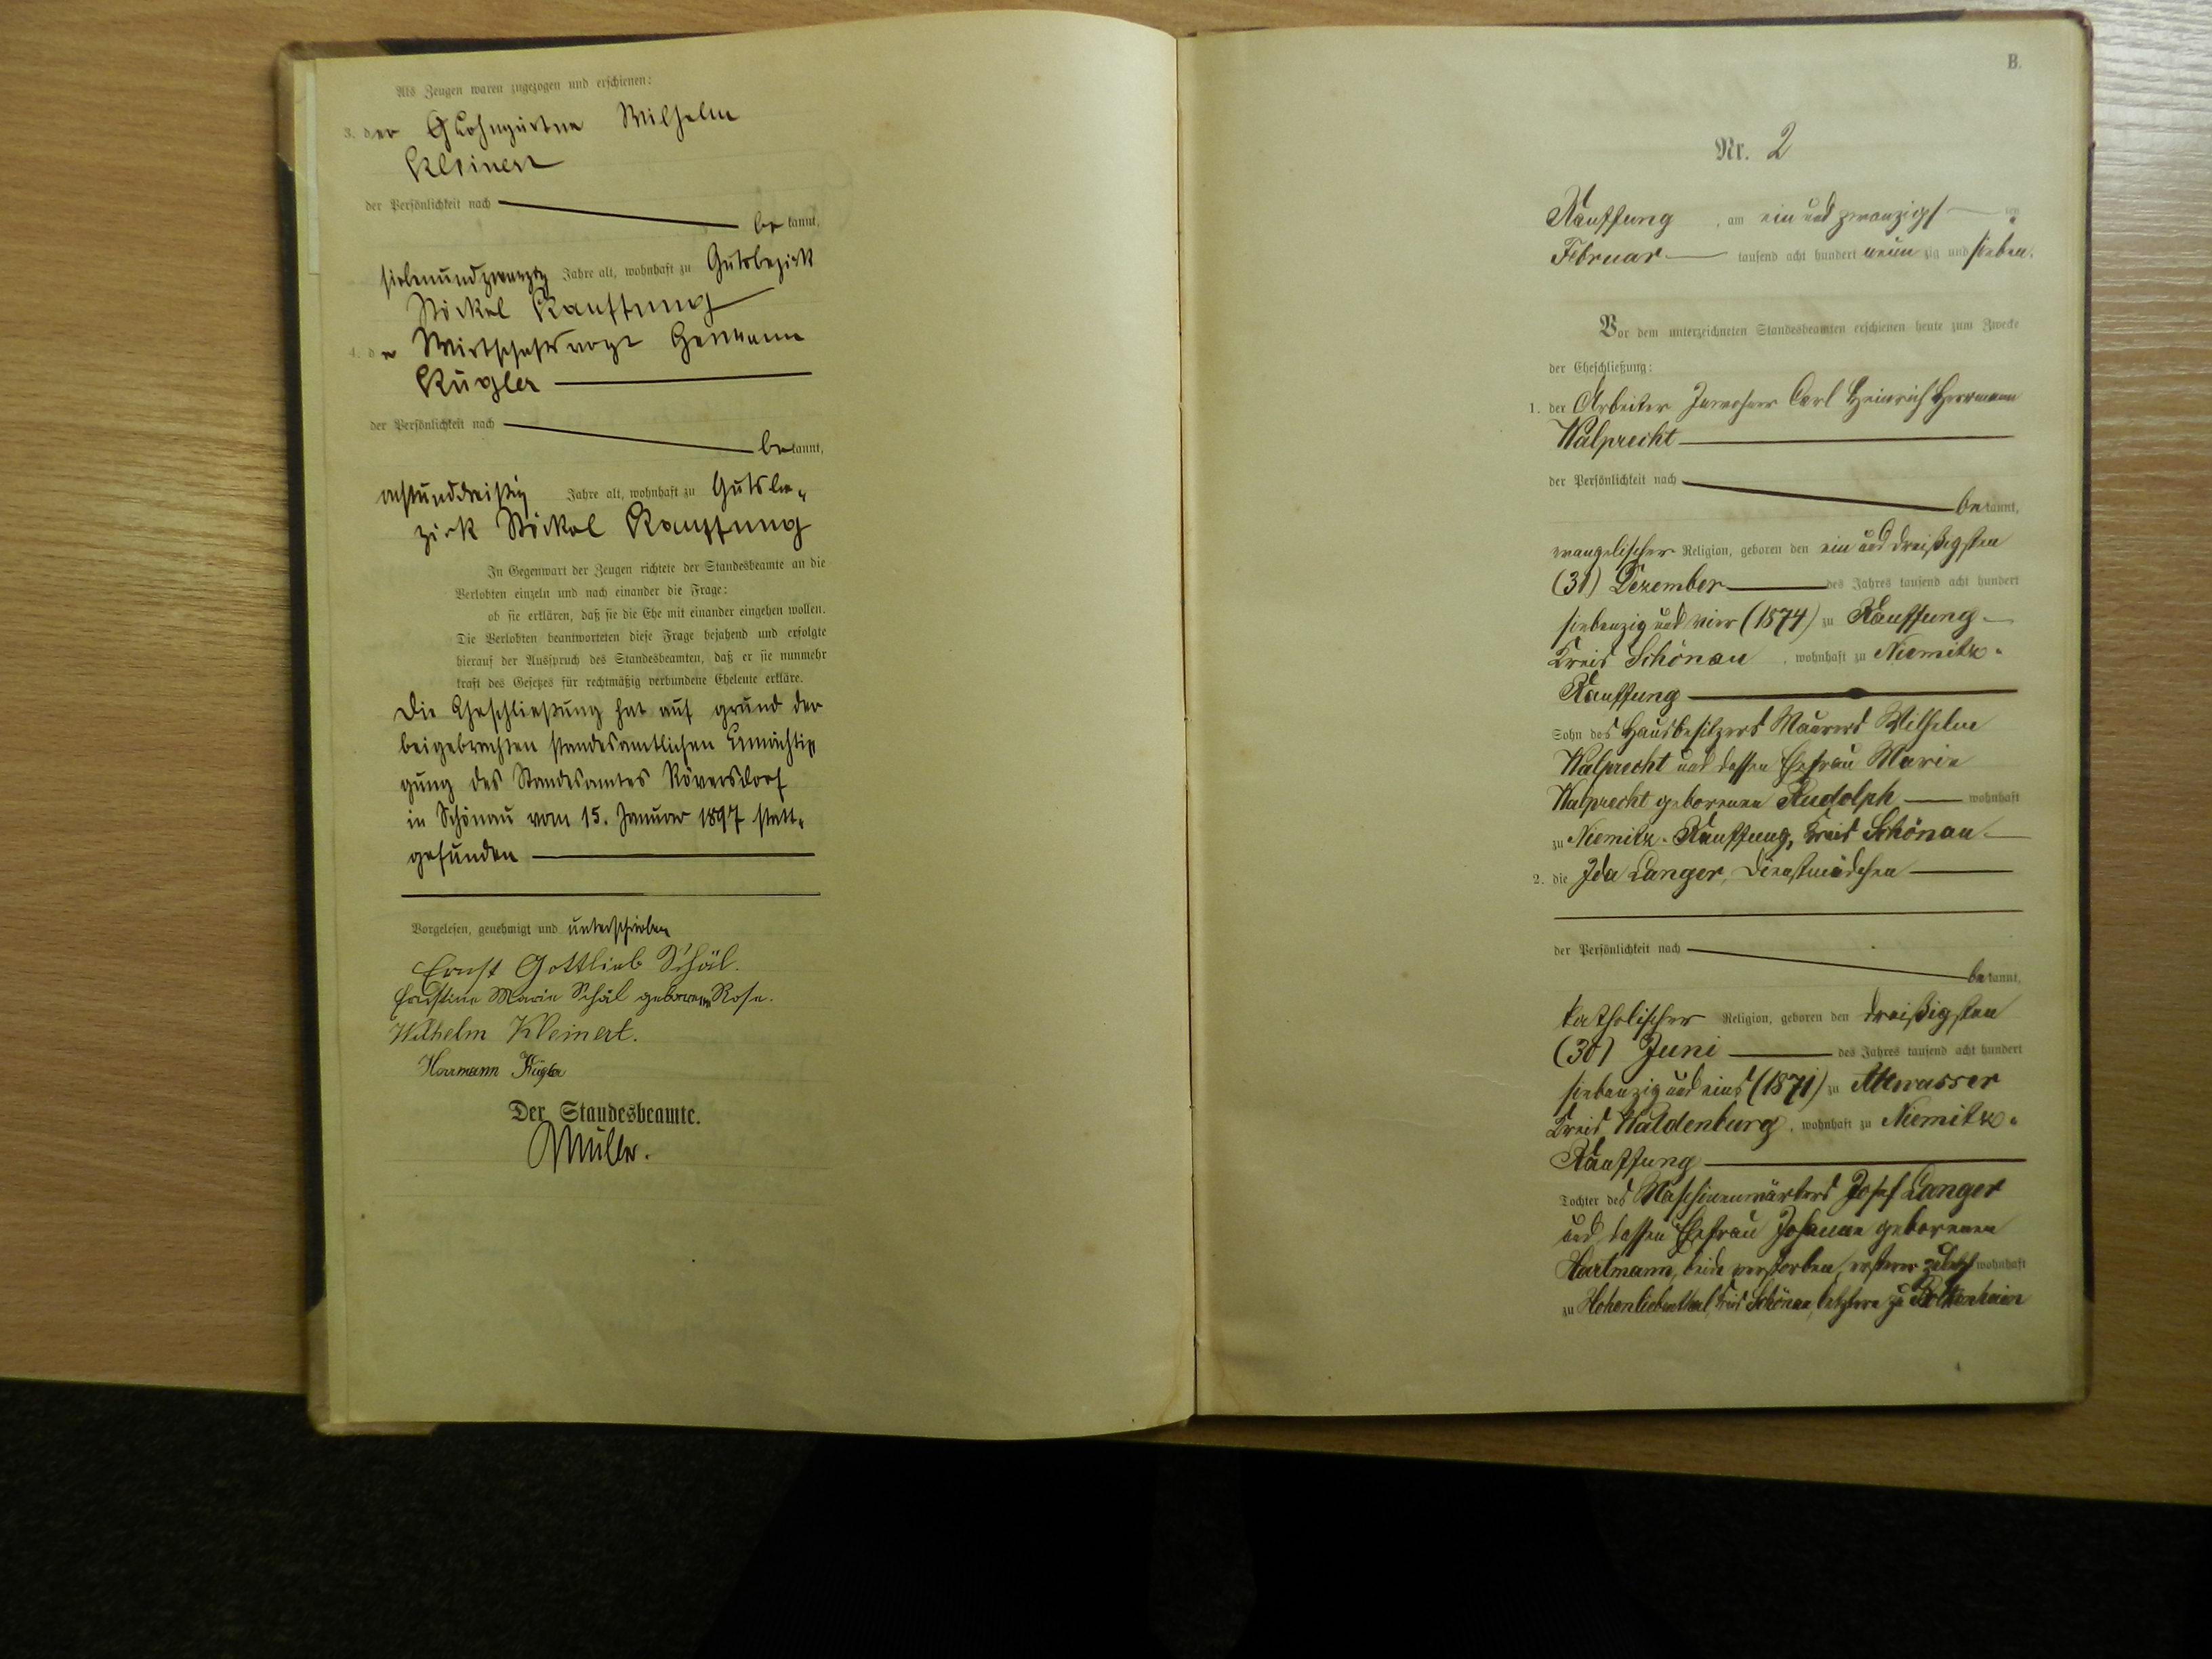 Als Zeugen waren zugezogen und erschienen:
3. der Lohngärtner Wilhelm
Kleinert
der Persönlichkeit nach
be kannt,
siebenundzwanzig Jahre alt, wohnhaft zu Gutsbezirk
Stöckel Kauffung
4. der Wirtschaftsvogt Hermann
Kügler
der Persönlichkeit nach
be kannt,
achtunddreißig Jahre alt, wohnhaft zu Gutsbe-
zirk Stöckel Kauffung
In Gegenwart der Zeugen richtete der Standesbeamte an die
Verlobten einzeln und nach einander die Frage:
ob sie erklären, daß sie die Ehe mit einander eingehen wollen.
Die Verlobten beantworteten diese Frage bejahend und erfolgte
hierauf der Ausspruch des Standesbeamten, daß er sie nunmehr
kraft des Gesetzes für rechtmäßig verbundene Eheleute erkläre.
Die Eheschließung hat auf grund der
beigebrachten standesamtlichen Ermächti-
gung des Standesamtes Röversdorf
in Schönau vom 15. Januar 1897 statt-
gefunden
Vorgelesen, genehmigt und unterschrieben
Ernst Gottlieb Schäl.
Ernstine Marie Schäl geborene Rose.
Wilhelm Kleinert.
Herrmann Kügler
Der Standesbeamte.
Müller.
B.
Nr. 2
Kauffung, am ein und zwanzigst en
Februar tausend acht hundert neun zig und sieben.
Vor dem unterzeichneten Standesbeamten erschienen heute zum Zwecke
der Eheschließung:
1. der Arbeiter Inwohner Carl Heinrich Herrmann
Walprecht
der Persönlichkeit nach
be kannt,
evangelischer Religion, geboren den ein und dreißigsten
(31) Dezember des Jahres tausend acht hundert
siebenzig und vier (1874) zu Kauffung
Kreis Schönau, wohnhaft zu Niemitz-
Kauffung
Sohn des Hausbesitzers Maurers Wilhelm
Walprecht und dessen Ehefrau Marie
Walprecht geborenen Rudolph wohnhaft
zu Niemitz-Kauffung, Kreis Schönau
2. die Ida Langer, Dienstmädchen
der Persönlichkeit nach
be kannt,
katholischer Religion, geboren den dreißigsten
(30) Juni des Jahres tausend acht hundert
siebenzig und eins (1871) zu Altwasser
Kreis Waldenburg, wohnhaft zu Niemitz-
Kauffung
Tochter des Maschinenwärters Josef Langer
und dessen Ehefrau Johanne geborenen
Hartmann, beide verstorben, ersterer zuletzt wohnhaft
zu Hohenliebenthal, Kreis Schönau, letztere zu Bolkenhain